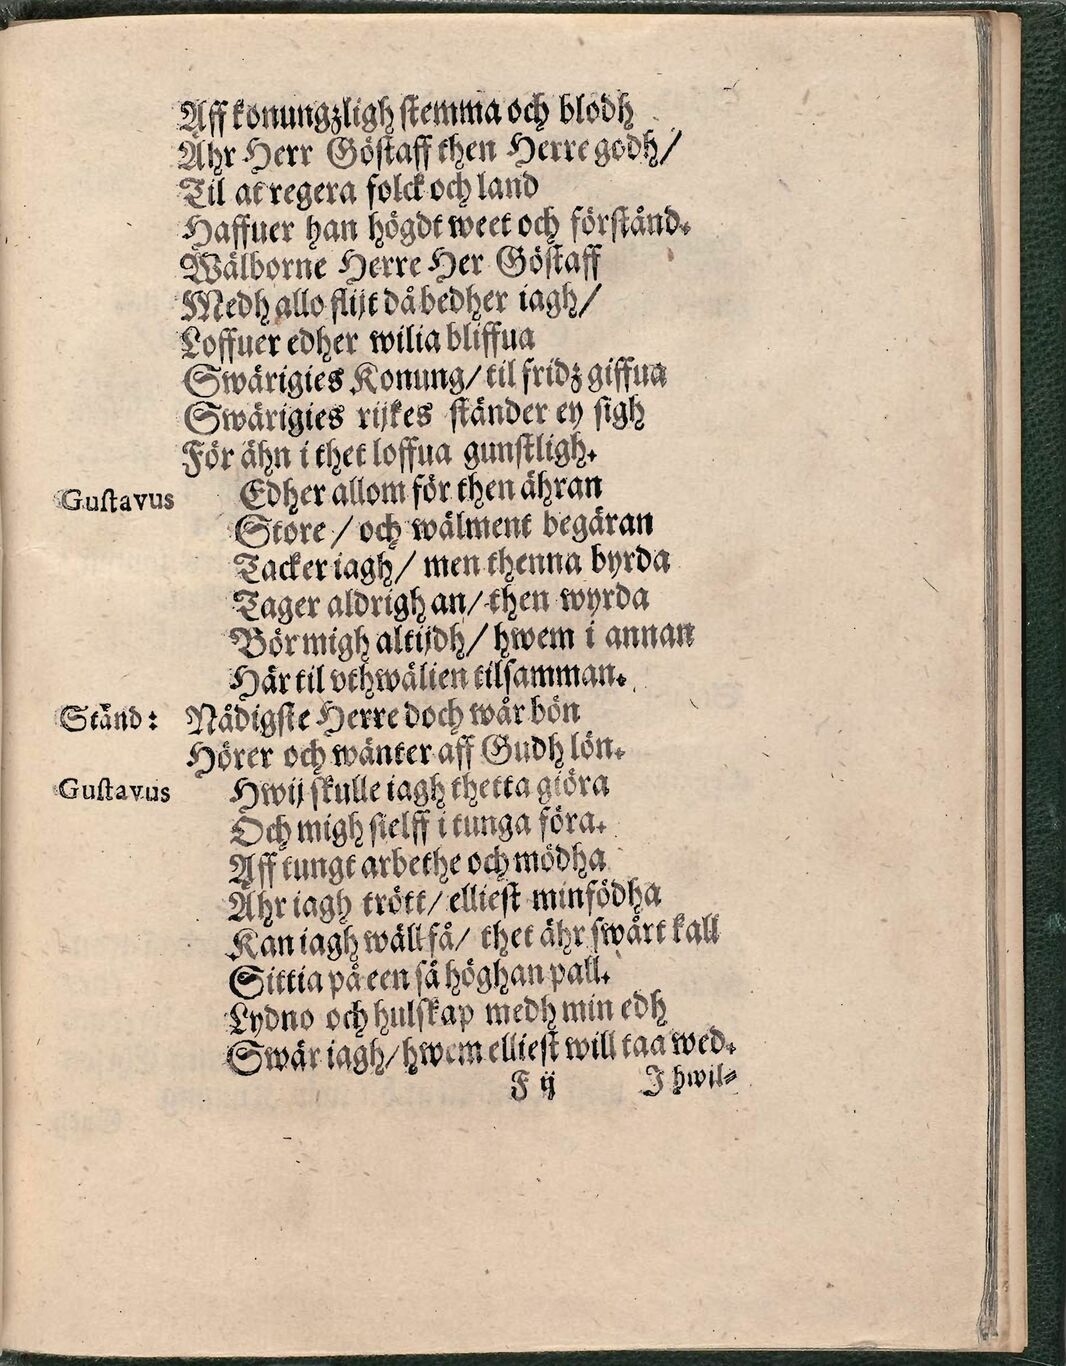 Aff konungzligh stemma och blodh
Ähr Herr Göstaff then Herre godh/
Til at regera folck och land
Haffuer han högdt weet och förstånd.
Wälborne Herre Her Göstaff
Medh allo flijt då bedher iagh/
Loffuer edher wilia bliffua
Swärigies Konung/ til fridz giffua
Swärigies rijkes ständer ey sigh
För ähn i thet loffua gunstligh.
Gustavus Edher allom för then ähran
Store/ och wälment begäran
Tacker iagh/ men thenna byrda
Tager aldrigh an/ then wyrda
Bör migh altijdh/ hwem i annan
Här til vthwälien tilsamman.
Ständ: Nädigste Herre doch wår bön
Hörer och wänter aff Gudh lön.
Gustavus Hwij skulle iagh thetta giöra
Och migh sielff i tunga föra.
Aff tungt arbethe och mödha
Ähr iagh trött/ elliest min födha
Kan iagh wäll få/ thet ähr swårt kall
Sittia på een så höghan pall.
Lydno och hulskap medh min edh
Swär iagh/ hwem elliest will taa wed.
F ij J hwil=